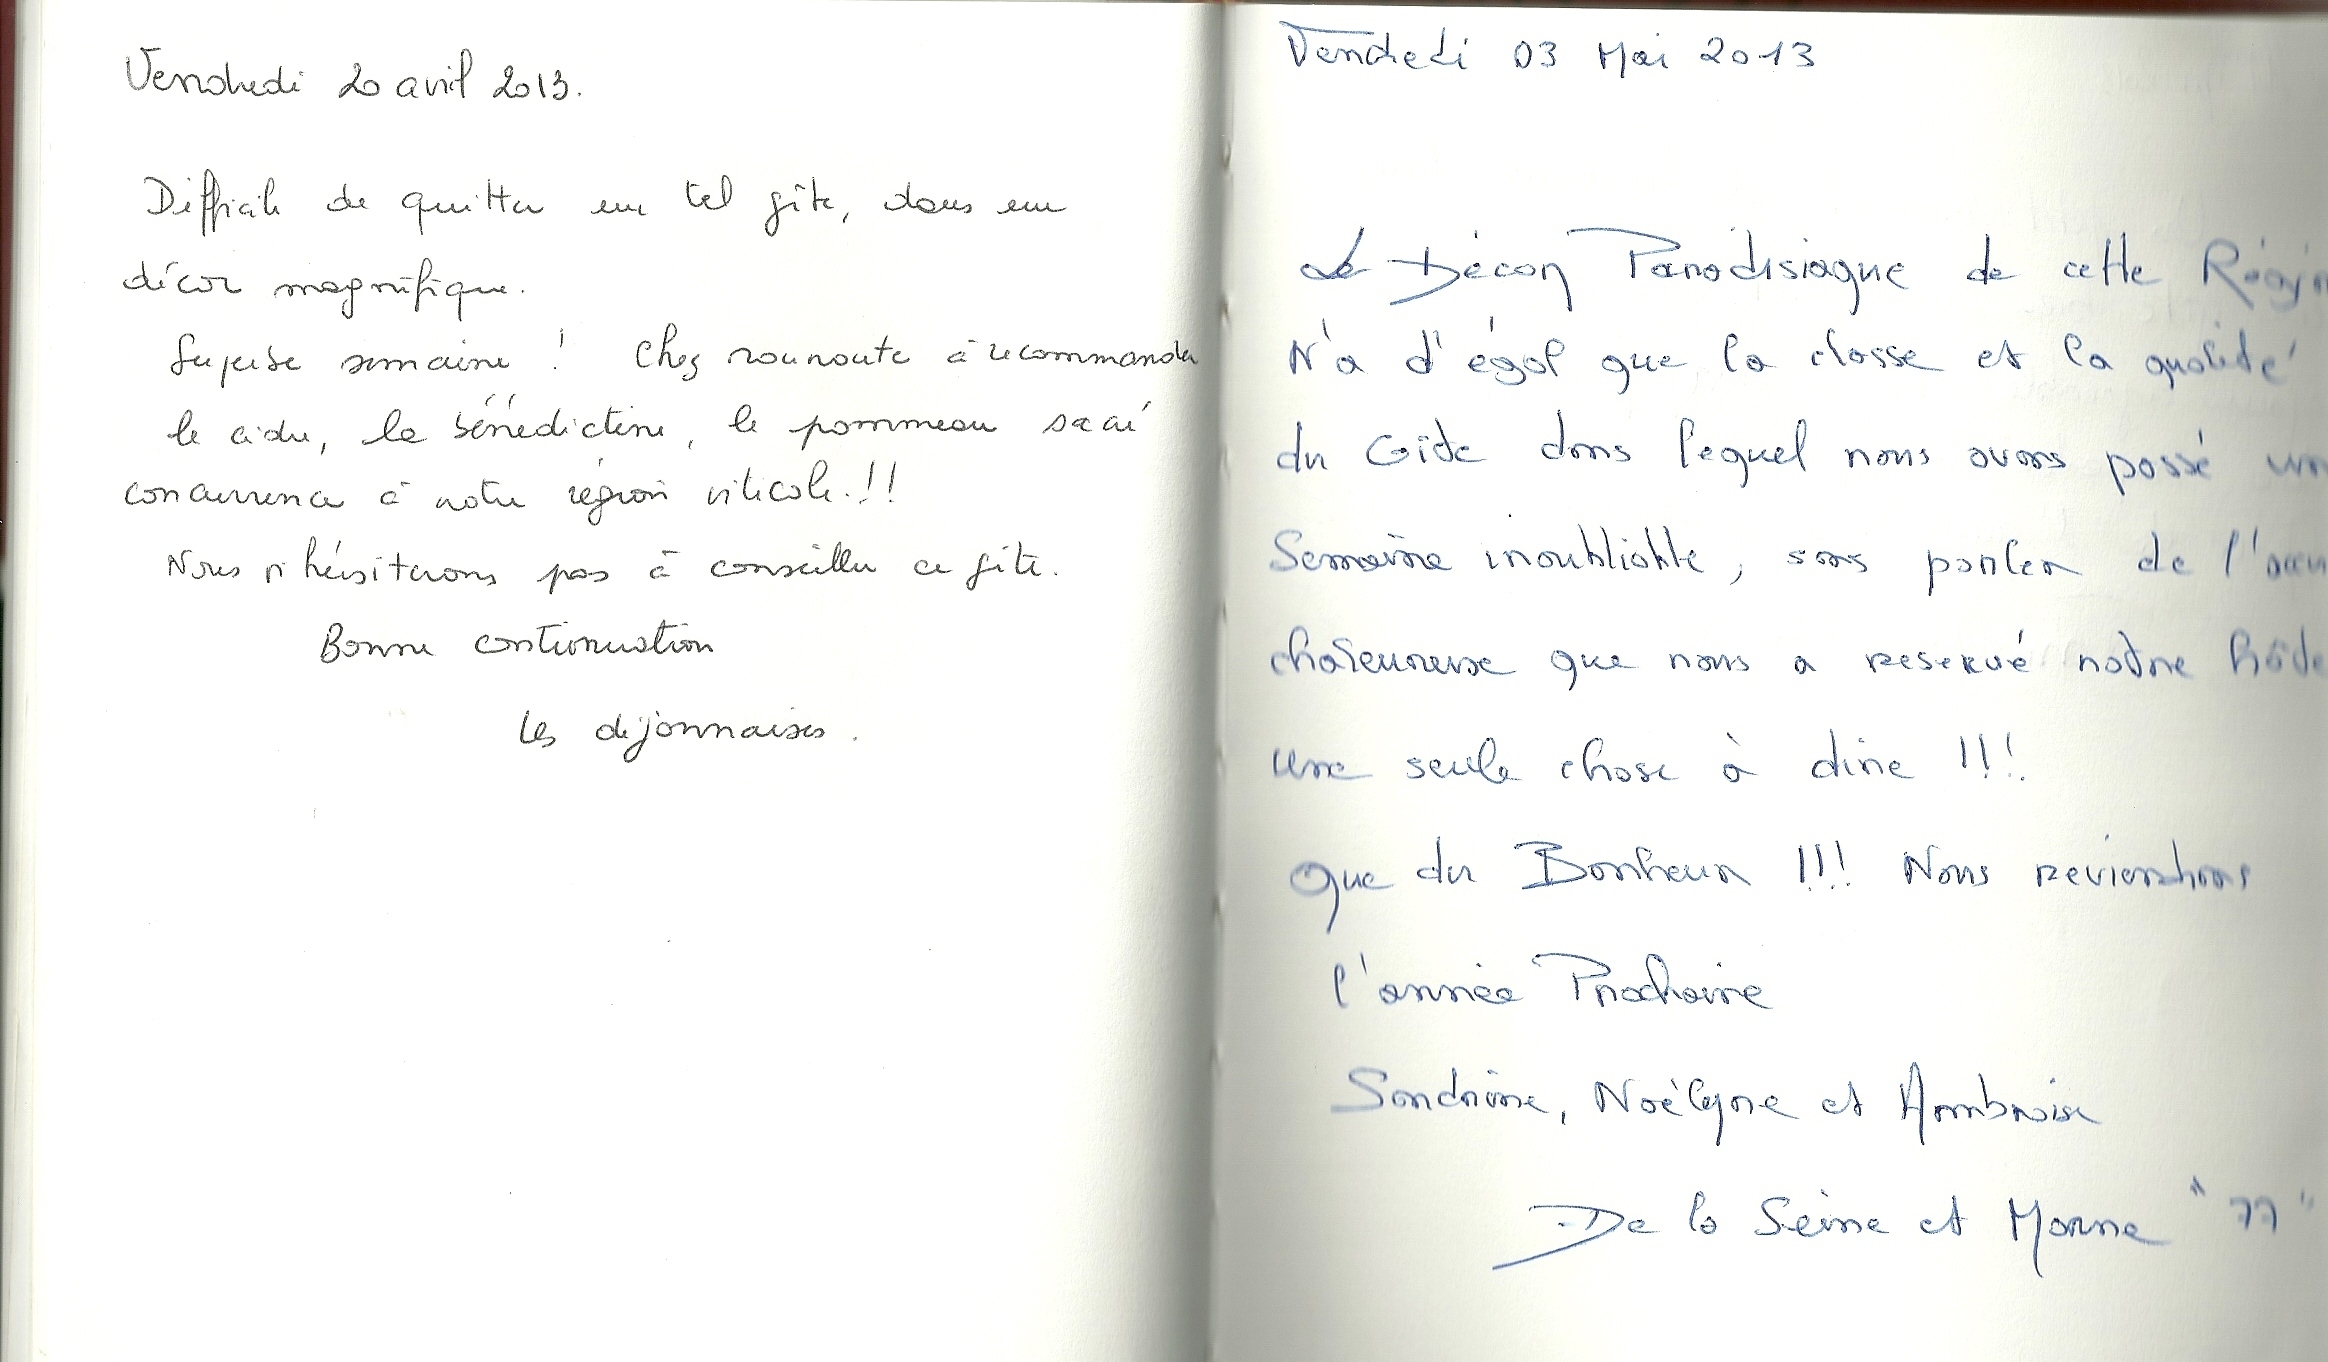 Vendredi 20 avril 2013.
Difficile de quitter un tel gîte, dans un
décor magnifique.
Superbe semaine ! Chez nounoute à recommander
le cidre, la bénédictine, le pommeau sacré
concurrence à notre région viticole.!!
Nous n'hésiterons pas à conseiller ce gîte.
Bonne continuation
Les dijonnaises.
Vendredi 03 Mai 2013
Le Décor Paradisiaque de cette Régi
N'a d'égal que la classe et la qualité
du Gîte dans lequel nous avons passé un
Semaine inoubliable, sans parler de l'
chaleureuse que nous a reservé notre hôte
une seule chose à dire !!!
que du Bonheur !!! Nous reviendrons
l'année Prochaine
Sandrine, Noëlyne et Ambroise
De la Seine et Marne "77"